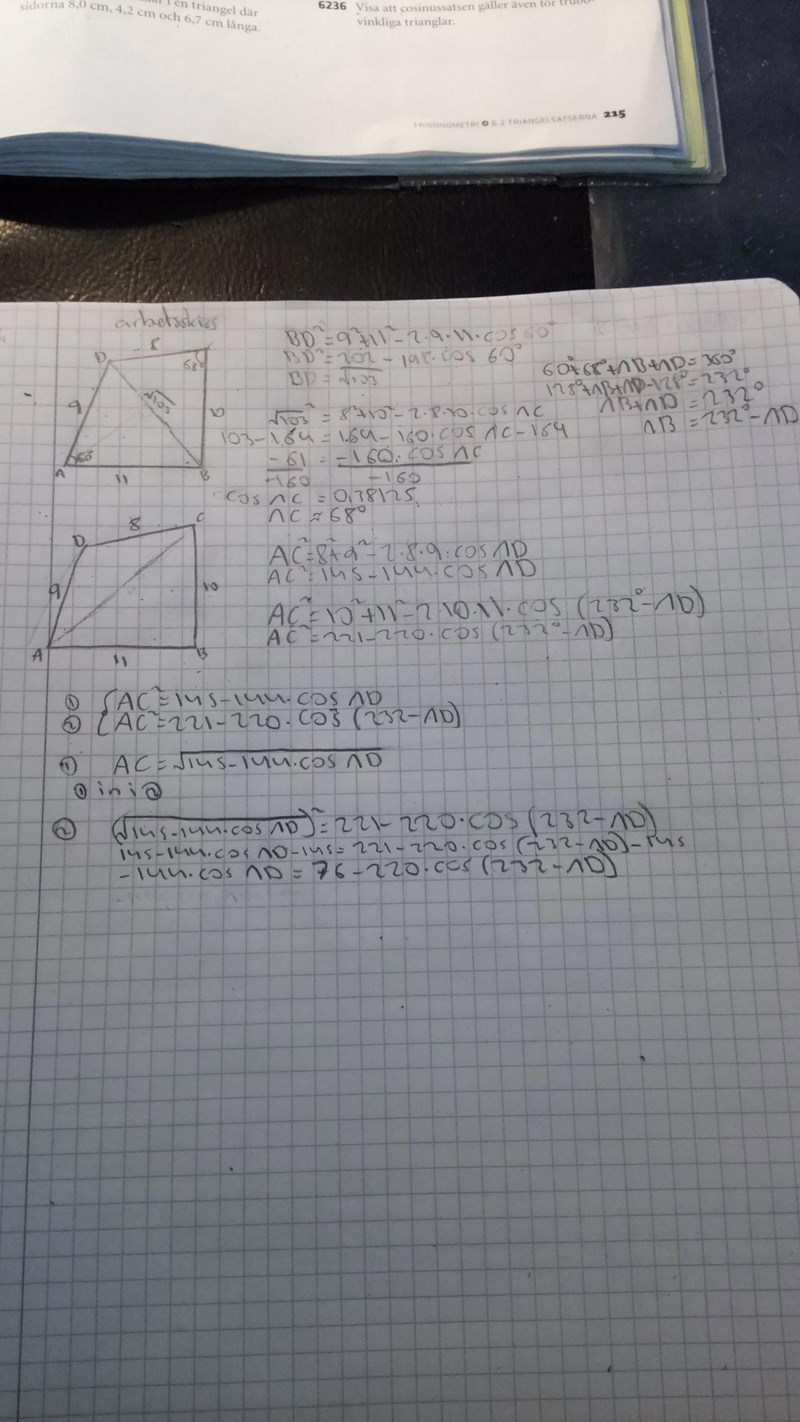 i en triangel där
sidorna 8,0 cm, 4,2 cm och 6,7 cm långa.
6236 Visa att cosinussatsen gäller även för trubb-
vinkliga trianglar.
TRIGONOMETRI 6.2 TRIANGELSATSERNA 215
arbetsskiss
8
D
68°
9
√103
10
A
60
11
B
BD²=9²+11²-2·9·11·cos 60°
BD²=202-198·cos 60°
BD=√103
√103²=8²+10²-2·8·10·cos ΛC
103-164=164-160·cos ΛC-164
-61 = -160·cos ΛC
-160 -160
cos ΛC = 0,38125
ΛC ≈ 68°
60°+68°+ΛB+ΛD=360°
128°+ΛB+ΛD-128°=232°
ΛB+ΛD=232°
ΛB=232°-ΛD
8
C
D
9
10
A
11
B
AC²=8²+9²-2·8·9·cos ΛD
AC²=145-144·cos ΛD
AC²=10²+11²-2·10·11·cos (232°-ΛD)
AC²=221-220·cos (232°-ΛD)
① {AC²=145-144·cos ΛD
② {AC²=221-220·cos (232-ΛD)
① AC=√145-144·cos ΛD
① in i ②
② (√145-144·cos ΛD)²=221-220·cos (232-ΛD)
145-144·cos ΛD-145=221-220·cos (232-ΛD)-145
-144·cos ΛD=76-220·cos (232-ΛD)